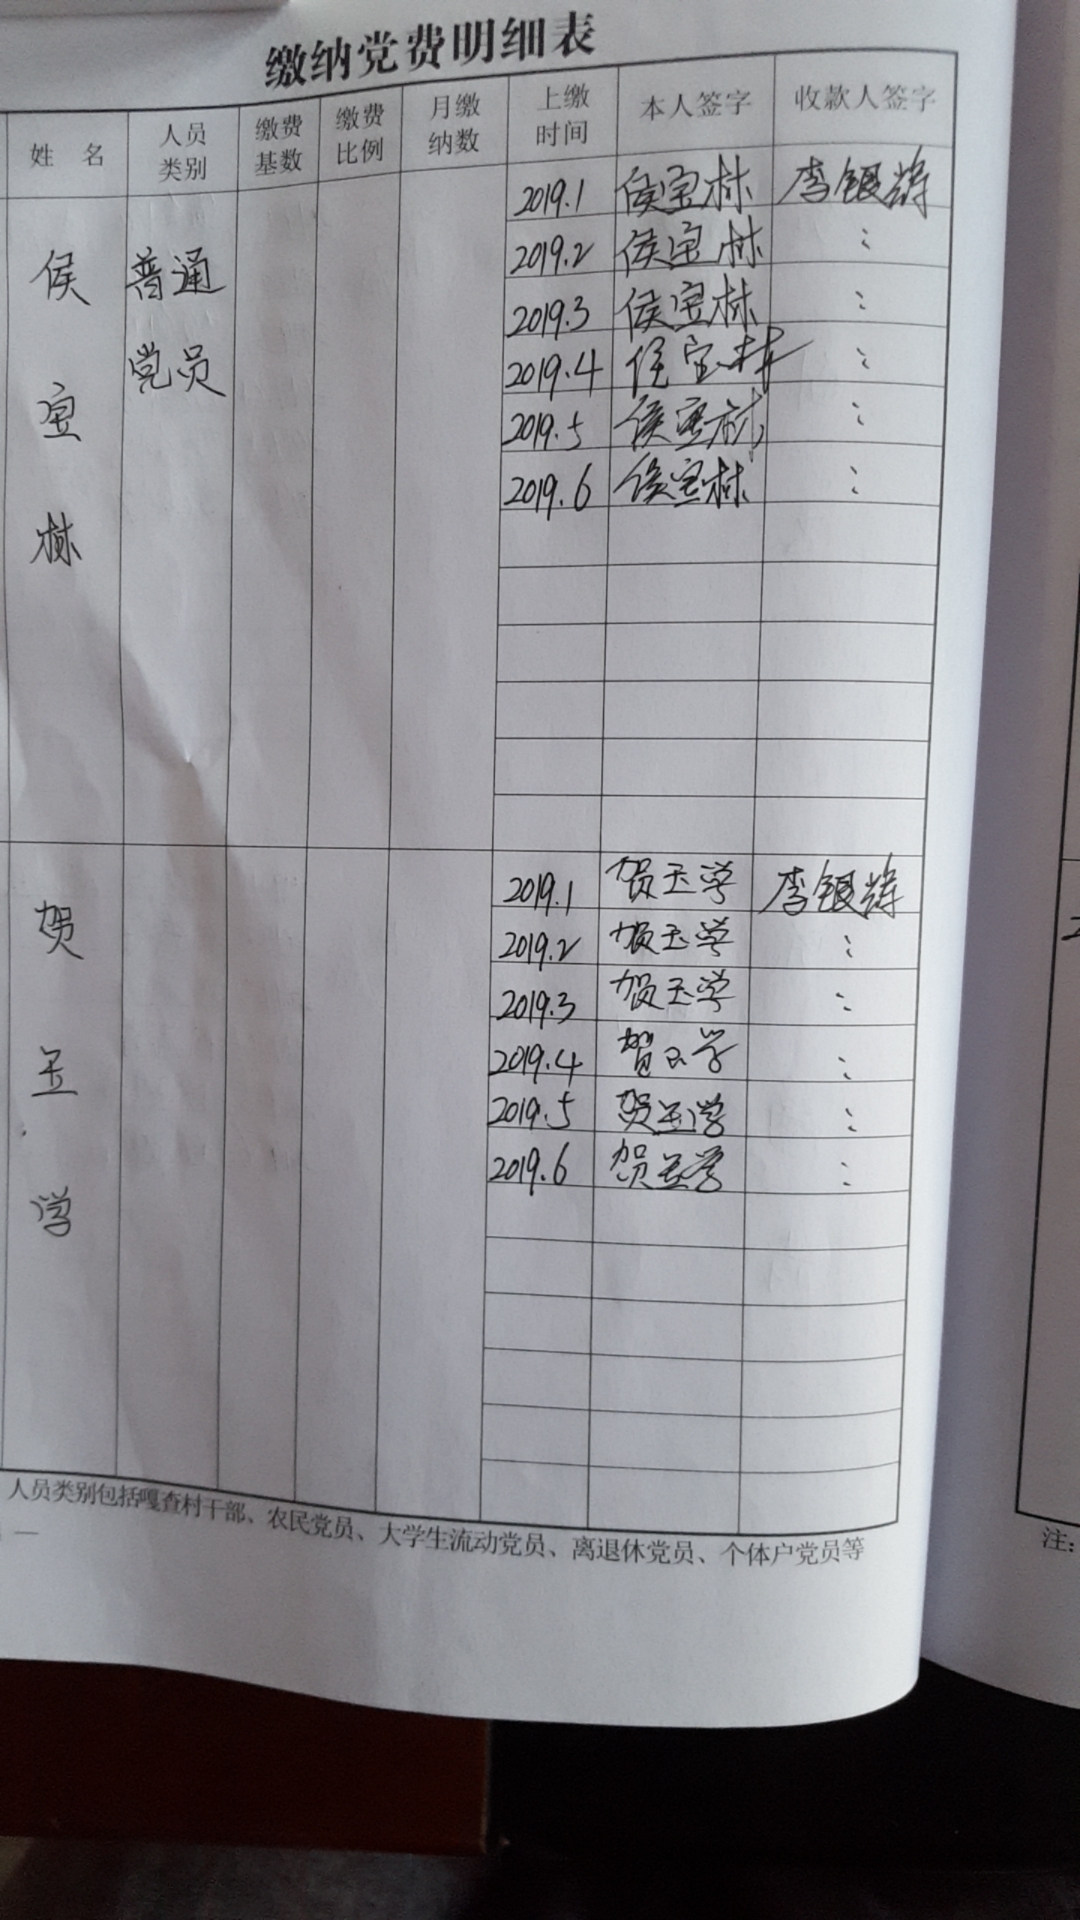 缴纳党费明细表
姓 名 人员类别 缴费基数 缴费比例 月缴纳数 上缴时间 本人签字 收款人签字
侯宝林 普通党员
2019.1 侯宝林 李银锋
2019.2 侯宝林 〃
2019.3 侯宝林 〃
2019.4 侯宝林 〃
2019.5 侯宝林 〃
2019.6 侯宝林 〃
贺玉学
2019.1 贺玉学 李银锋
2019.2 贺玉学 〃
2019.3 贺玉学 〃
2019.4 贺玉学 〃
2019.5 贺玉学 〃
2019.6 贺玉学 〃
人员类别包括嘎查村干部、农民党员、大学生流动党员、离退休党员、个体户党员等
注: